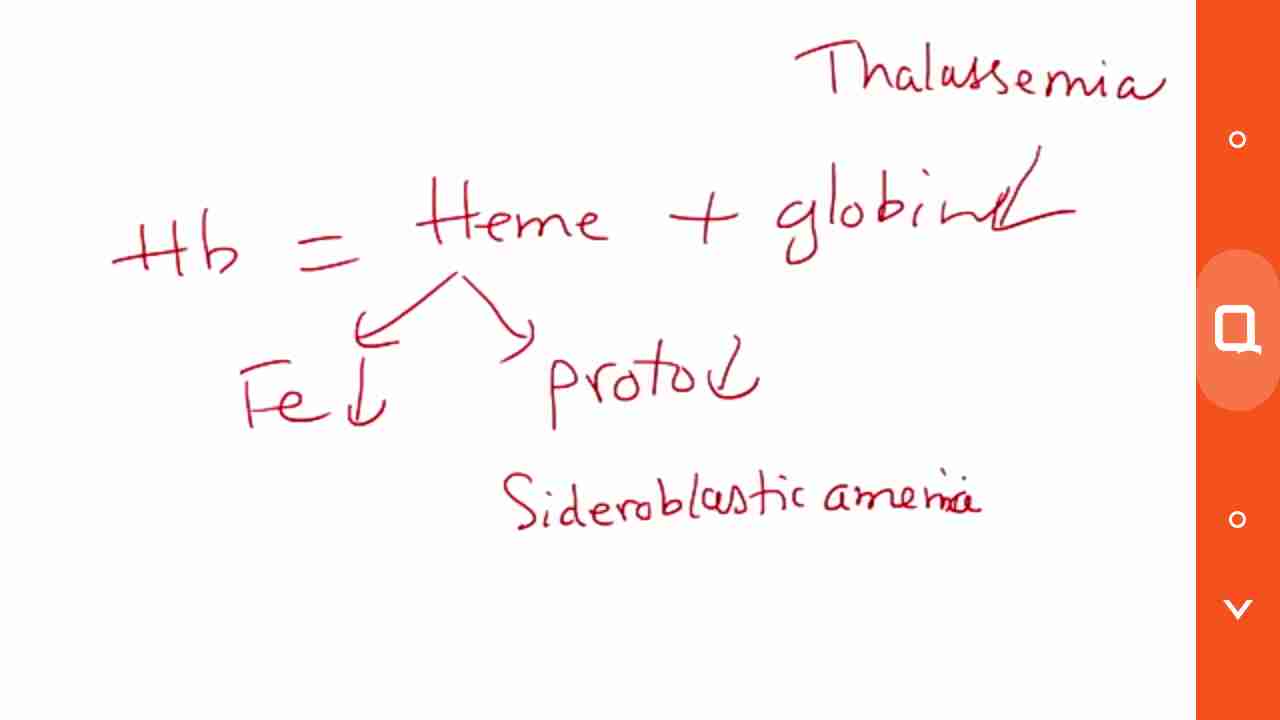 Thalassemia
Hb = Heme + globin↓
Fe↓ proto↓
Sideroblastic anemia